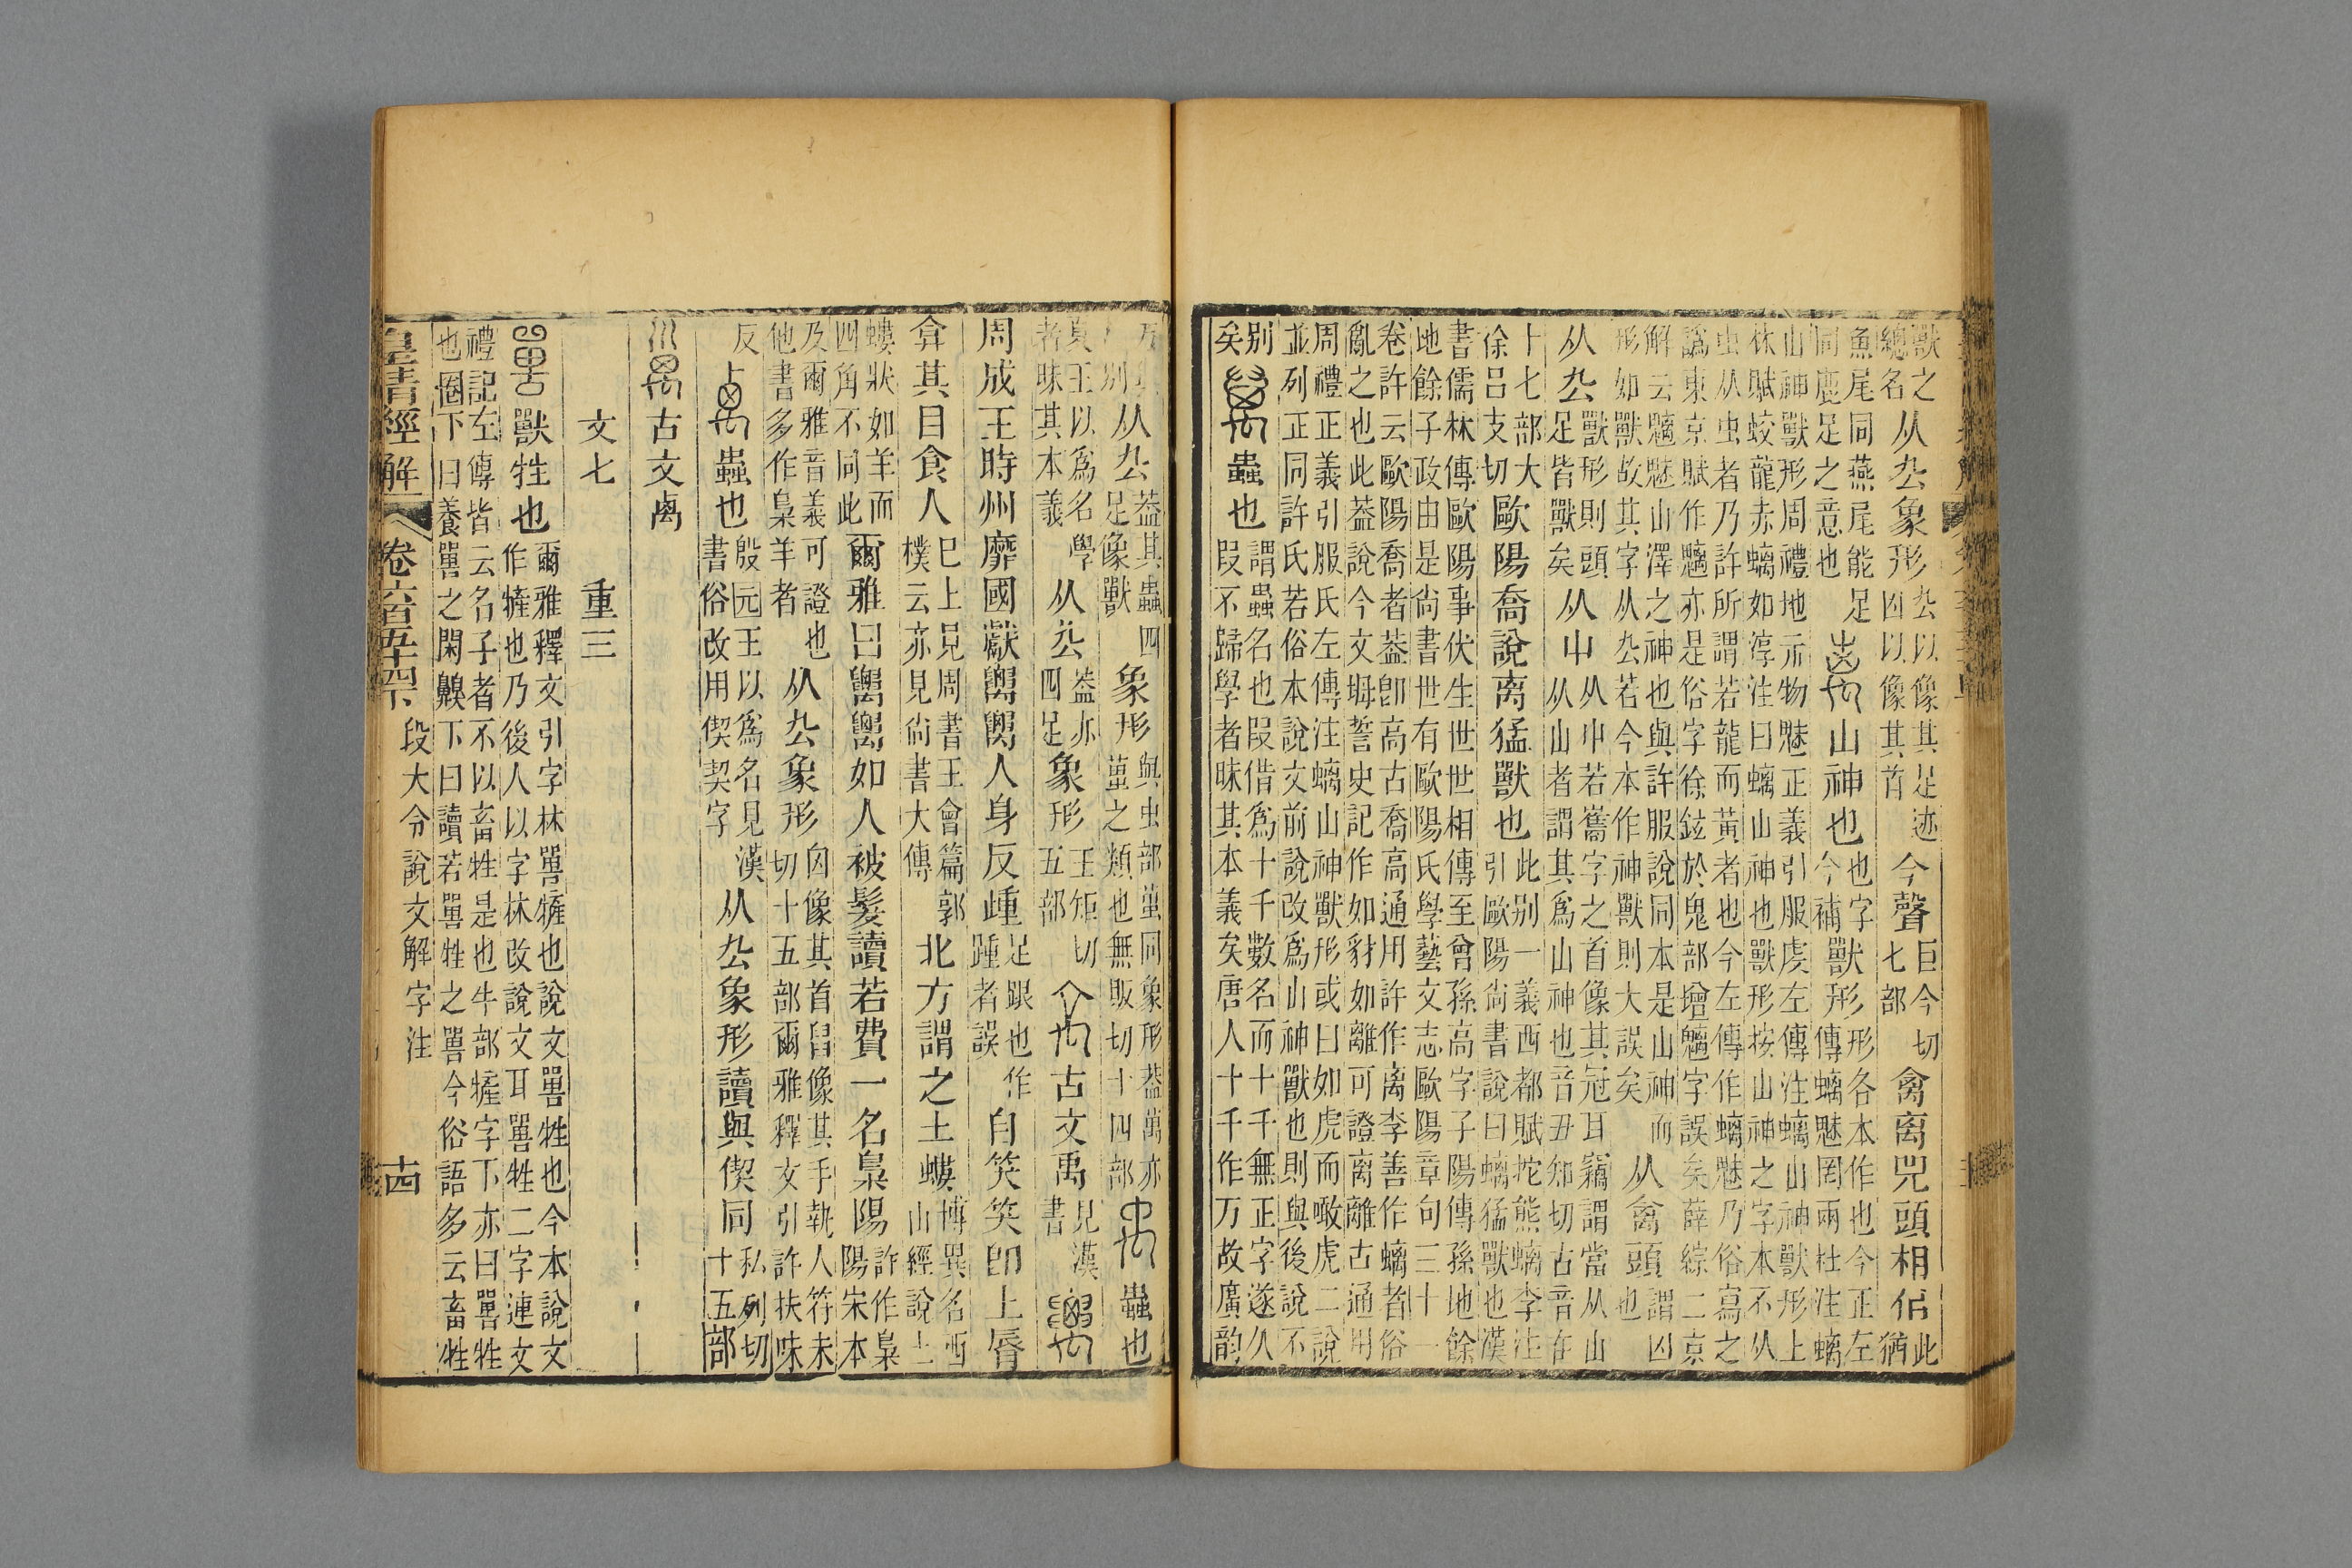 獸之總名从厹象形厹以像其足迹凶以像其首今聲巨今切七部禽离兕頭相佀此猶
魚尾同燕尾能足同鹿足之意也山神也也字今補獸形形各本作也今正左傳螭魅罔兩杜注螭
山神獸形周禮地示物魅正義引服虔左傳注螭山神獸形上林賦蛟龍赤螭如淳注曰螭山神也獸形按山神之字本不从
虫从虫者乃許所謂若龍而黃者也今左傳作螭魅乃俗寫之譌東京賦作魑亦是俗字徐鉉於鬼部增魑字誤矣薛綜二京
解云魑魅山澤之神也與許服說同本是山神而形如獸故其字从厹若今本作神獸則大誤矣从禽頭謂凶也
从厹獸形則頭足皆獸矣从屮从屮若巂字之首像其冠耳竊謂當从山从山者謂其爲山神也音丑知切古音在
十七部大徐呂支切歐陽喬說离猛獸也此别一義西都賦挓熊螭李注引歐陽尙書說曰螭猛獸也漢
書儒林傳歐陽事伏生世世相傳至曾孫高字子陽傳孫地餘地餘子政由是尙書世有歐陽氏學藝文志歐陽章句三十一
卷許云歐陽喬者葢卽高古喬高通用許作离李善作螭者俗亂之也此葢說今文坶誓史記作如豺如離可證离離古通用
周禮正義引服氏左傳注螭山神獸形或曰如虎而噉虎二說並列正同許氏若俗本說文前說改爲山神獸也則與後說不
别矣蟲也謂蟲名也叚借爲十千數名而十千無正字遂久叚不歸學者昧其本義矣唐人十千作万故廣韵
别从厹葢其蟲四足像獸象形與虫部蠆同象形葢萬亦蠆之類也無販切十四部蟲也
夏王以爲名學者昧其本義从厹葢亦四足象形王矩切五部古文禹見漢書
周成王時州靡國獻人身反踵足跟也作踵者誤自笑笑卽上脣
弇其目食人已上見周書王會篇郭樸云亦見尙書大傳北方謂之土螻博異名西山經說土
螻狀如羊而四角不同此爾雅曰如人被髮讀若費一名梟陽許作梟陽宋本
及爾雅音義可證也他書多作梟羊者从厹象形囟像其首𦥑像其手執人符未切十五部爾雅釋文引許扶味
反蟲也殷元王以爲名見漢書俗改用偰契字从厹象形讀與偰同私列切十五部
古文禼
文七 重三
獸牲也爾雅釋文引字林嘼㹌也說文嘼牲也今本說文作㹌也乃後人以字林改說文耳嘼牲二字連文
禮記左傳皆云名子者不以畜牲是也牛部㹌字下亦曰嘼牲也圈下曰養嘼之閑䶂下曰讀若嘼牲之嘼今俗語多云畜牲
皇清經解 卷六百五十四下 段大令說文解字注 十四